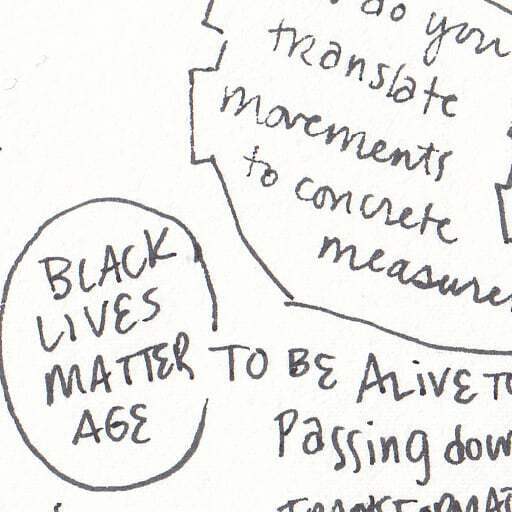 do you
translate
movements
to concrete
measures
BLACK
LIVES
MATTER
AGE
TO BE ALIVE TO
Passing down